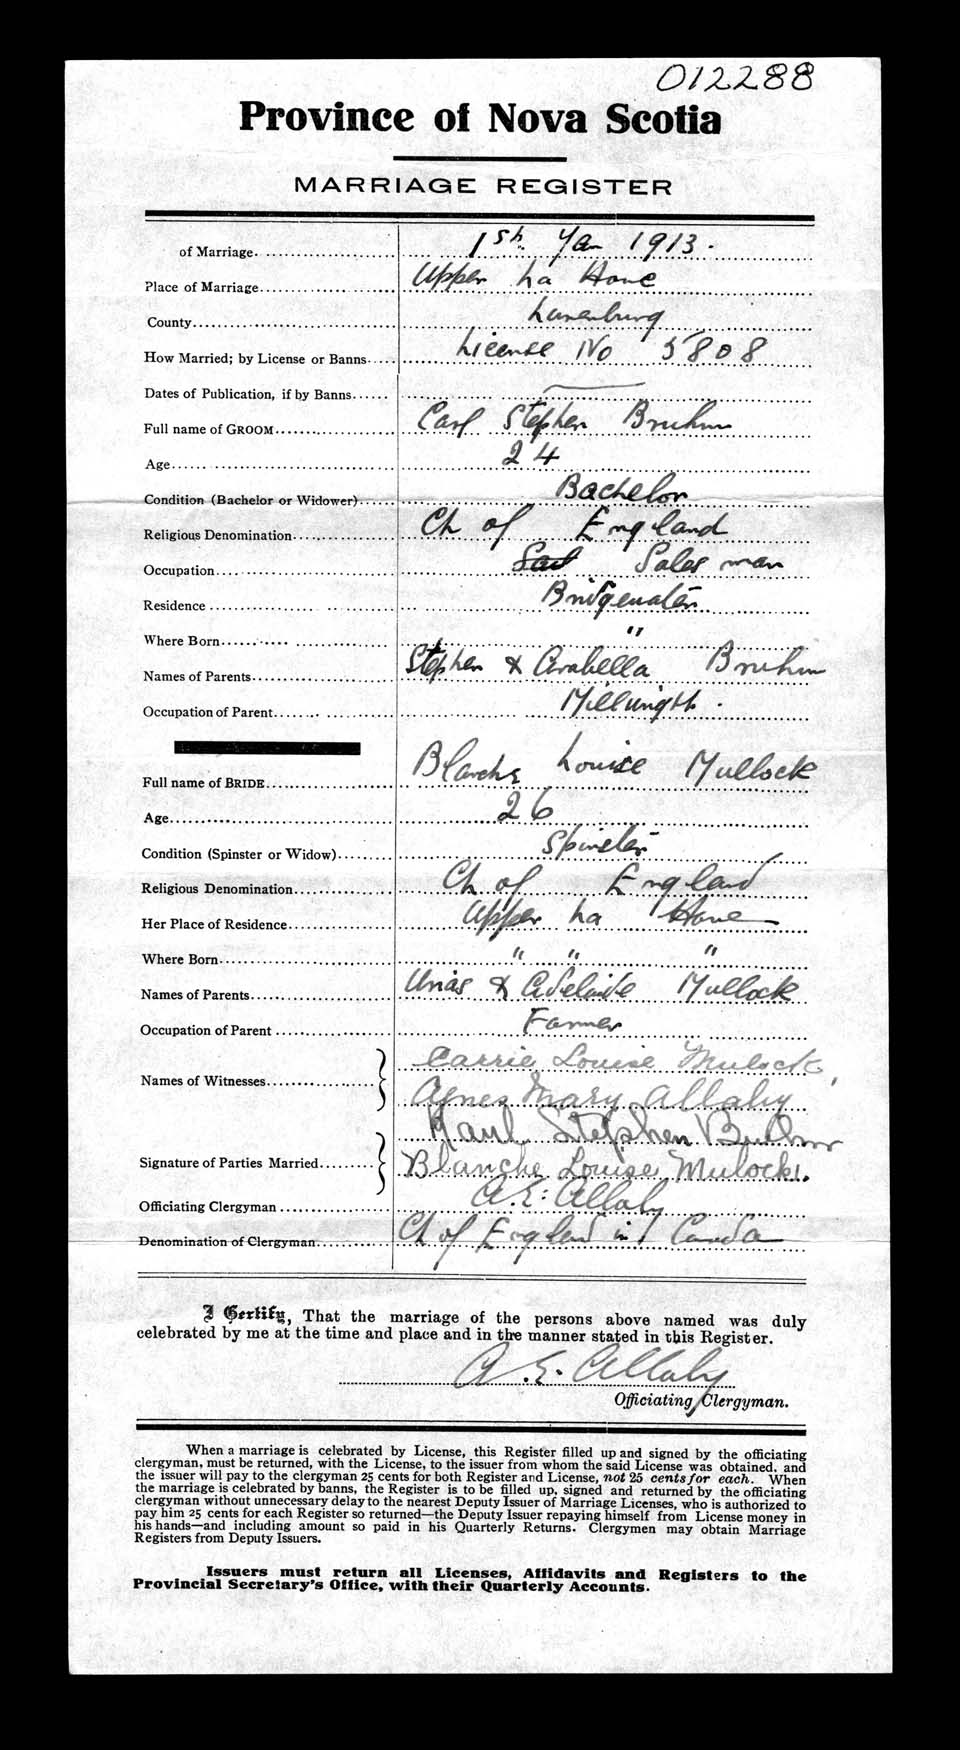 012288
Province of Nova Scotia
MARRIAGE REGISTER
of Marriage 1st Jan 1913.
Place of Marriage Upper La Have
County Lunenburg
How Married; by License or Banns License No 5808
Dates of Publication, if by Banns —
Full name of GROOM Carl Stephen Bruhm
Age 24
Condition (Bachelor or Widower) Bachelor
Religious Denomination Ch of England
Occupation Sales man
Residence Bridgewater
Where Born "
Names of Parents Stephen & Arabella Bruhm
Occupation of Parent Millwright.
Full name of BRIDE Blanche Louise Mullock
Age 26
Condition (Spinster or Widow) Spinster
Religious Denomination Ch of England
Her Place of Residence Upper La Have
Where Born " " "
Names of Parents Urias & Adelaide Mullock
Occupation of Parent Farmer
Names of Witnesses Carrie Louise Mulock,
Agnes Mary Allaby
Signature of Parties Married Karl Stephen
Blanche Louise Mulock.
Officiating Clergyman A. E. Allaby
Denomination of Clergyman Ch of England in Canada
I Certify, That the marriage of the persons above named was duly
celebrated by me at the time and place and in the manner stated in this Register.
A. E. Allaby
Officiating Clergyman.
When a marriage is celebrated by License, this Register filled up and signed by the officiating
clergyman, must be returned, with the License, to the issuer from whom the said License was obtained, and
the issuer will pay to the clergyman 25 cents for both Register and License, not 25 cents for each. When
the marriage is celebrated by banns, the Register is to be filled up, signed and returned by the officiating
clergyman without unnecessary delay to the nearest Deputy Issuer of Marriage Licenses, who is authorized to
pay him 25 cents for each Register so returned—the Deputy Issuer repaying himself from License money in
his hands—and including amount so paid in his Quarterly Returns. Clergymen may obtain Marriage
Registers from Deputy Issuers.
Issuers must return all Licenses, Affidavits and Registers to the
Provincial Secretary's Office, with their Quarterly Accounts.